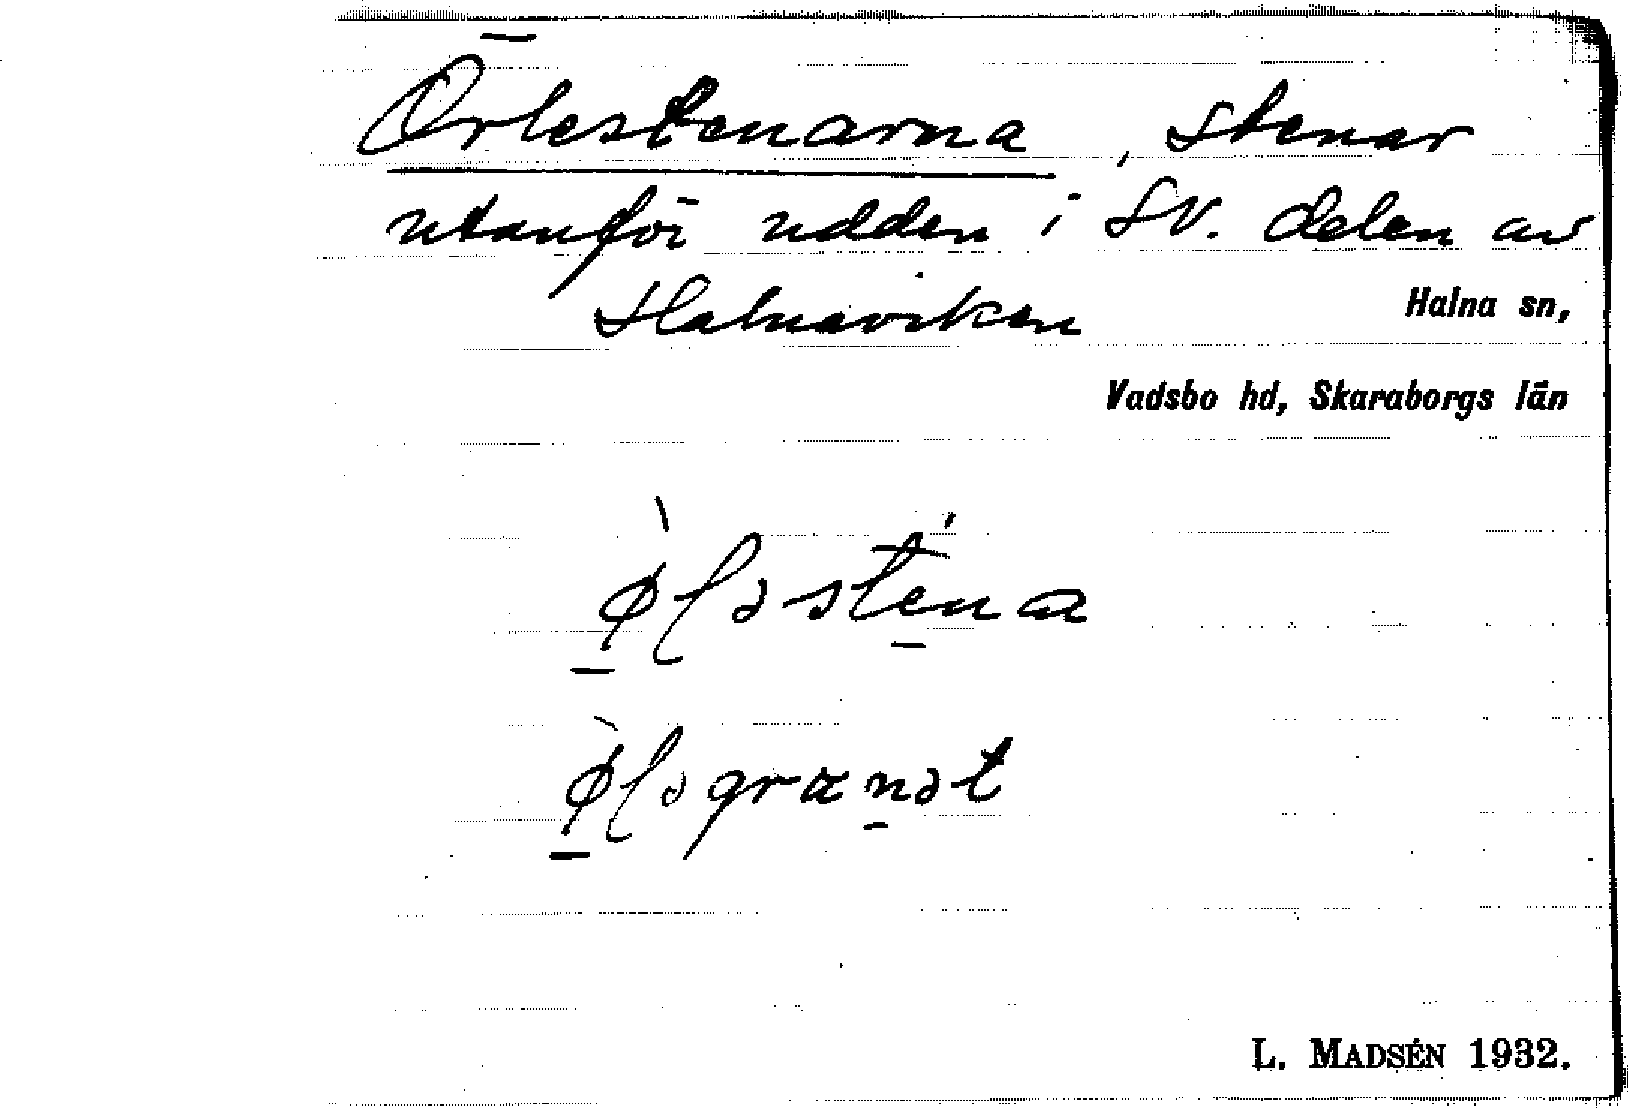 Örlestenarna, stenar
utanför udden i SV. delen av
Halnaviken
Halna sn,
Vadsbo hd, Skaraborgs län
L. MADSÉN 1932.